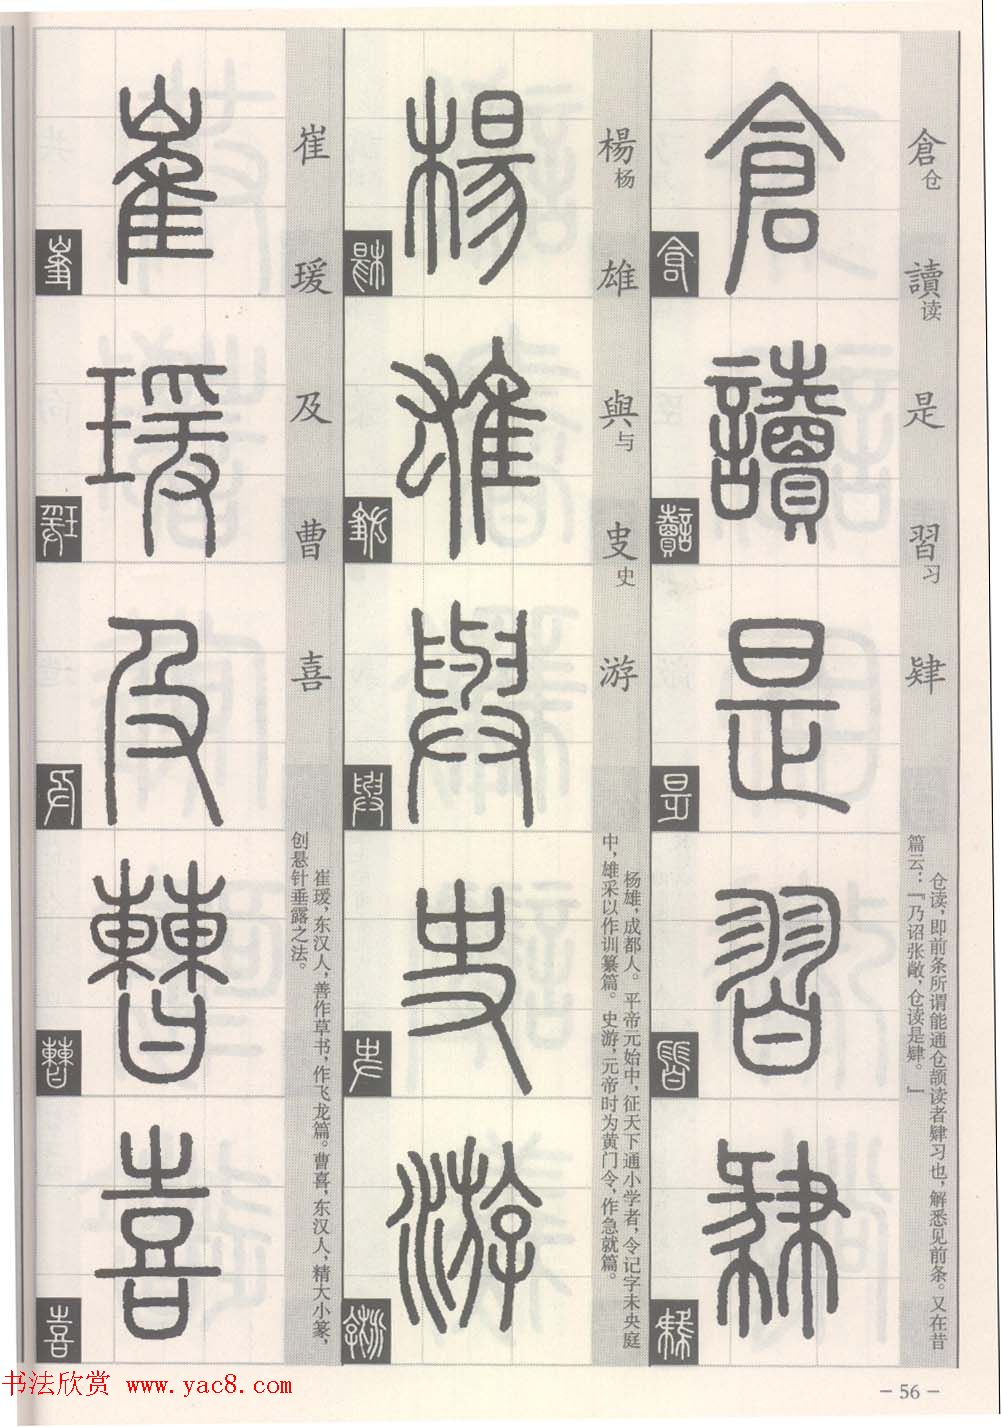 倉仓
讀读
是
習习
肄
倉
讀
是
習
肄
仓读，即前条所谓能通仓颉读者肄习也，解悉见前条。又在昔
篇云：「乃诏张敞，仓读是肄。」
楊杨
雄
與与
㕜史
游
楊
雄
與
史
游
杨雄，成都人。平帝元始中，征天下通小学者，令记字未央庭
中，雄采以作训纂篇。史游，元帝时为黄门令，作急就篇。
崔
瑗
及
曹
喜
崔
瑗
及
曹
喜
崔瑗，东汉人，善作草书，作飞龙篇。曹喜，东汉人，精大小篆，
创悬针垂露之法。
书法欣赏 www.yac8.com
－56－